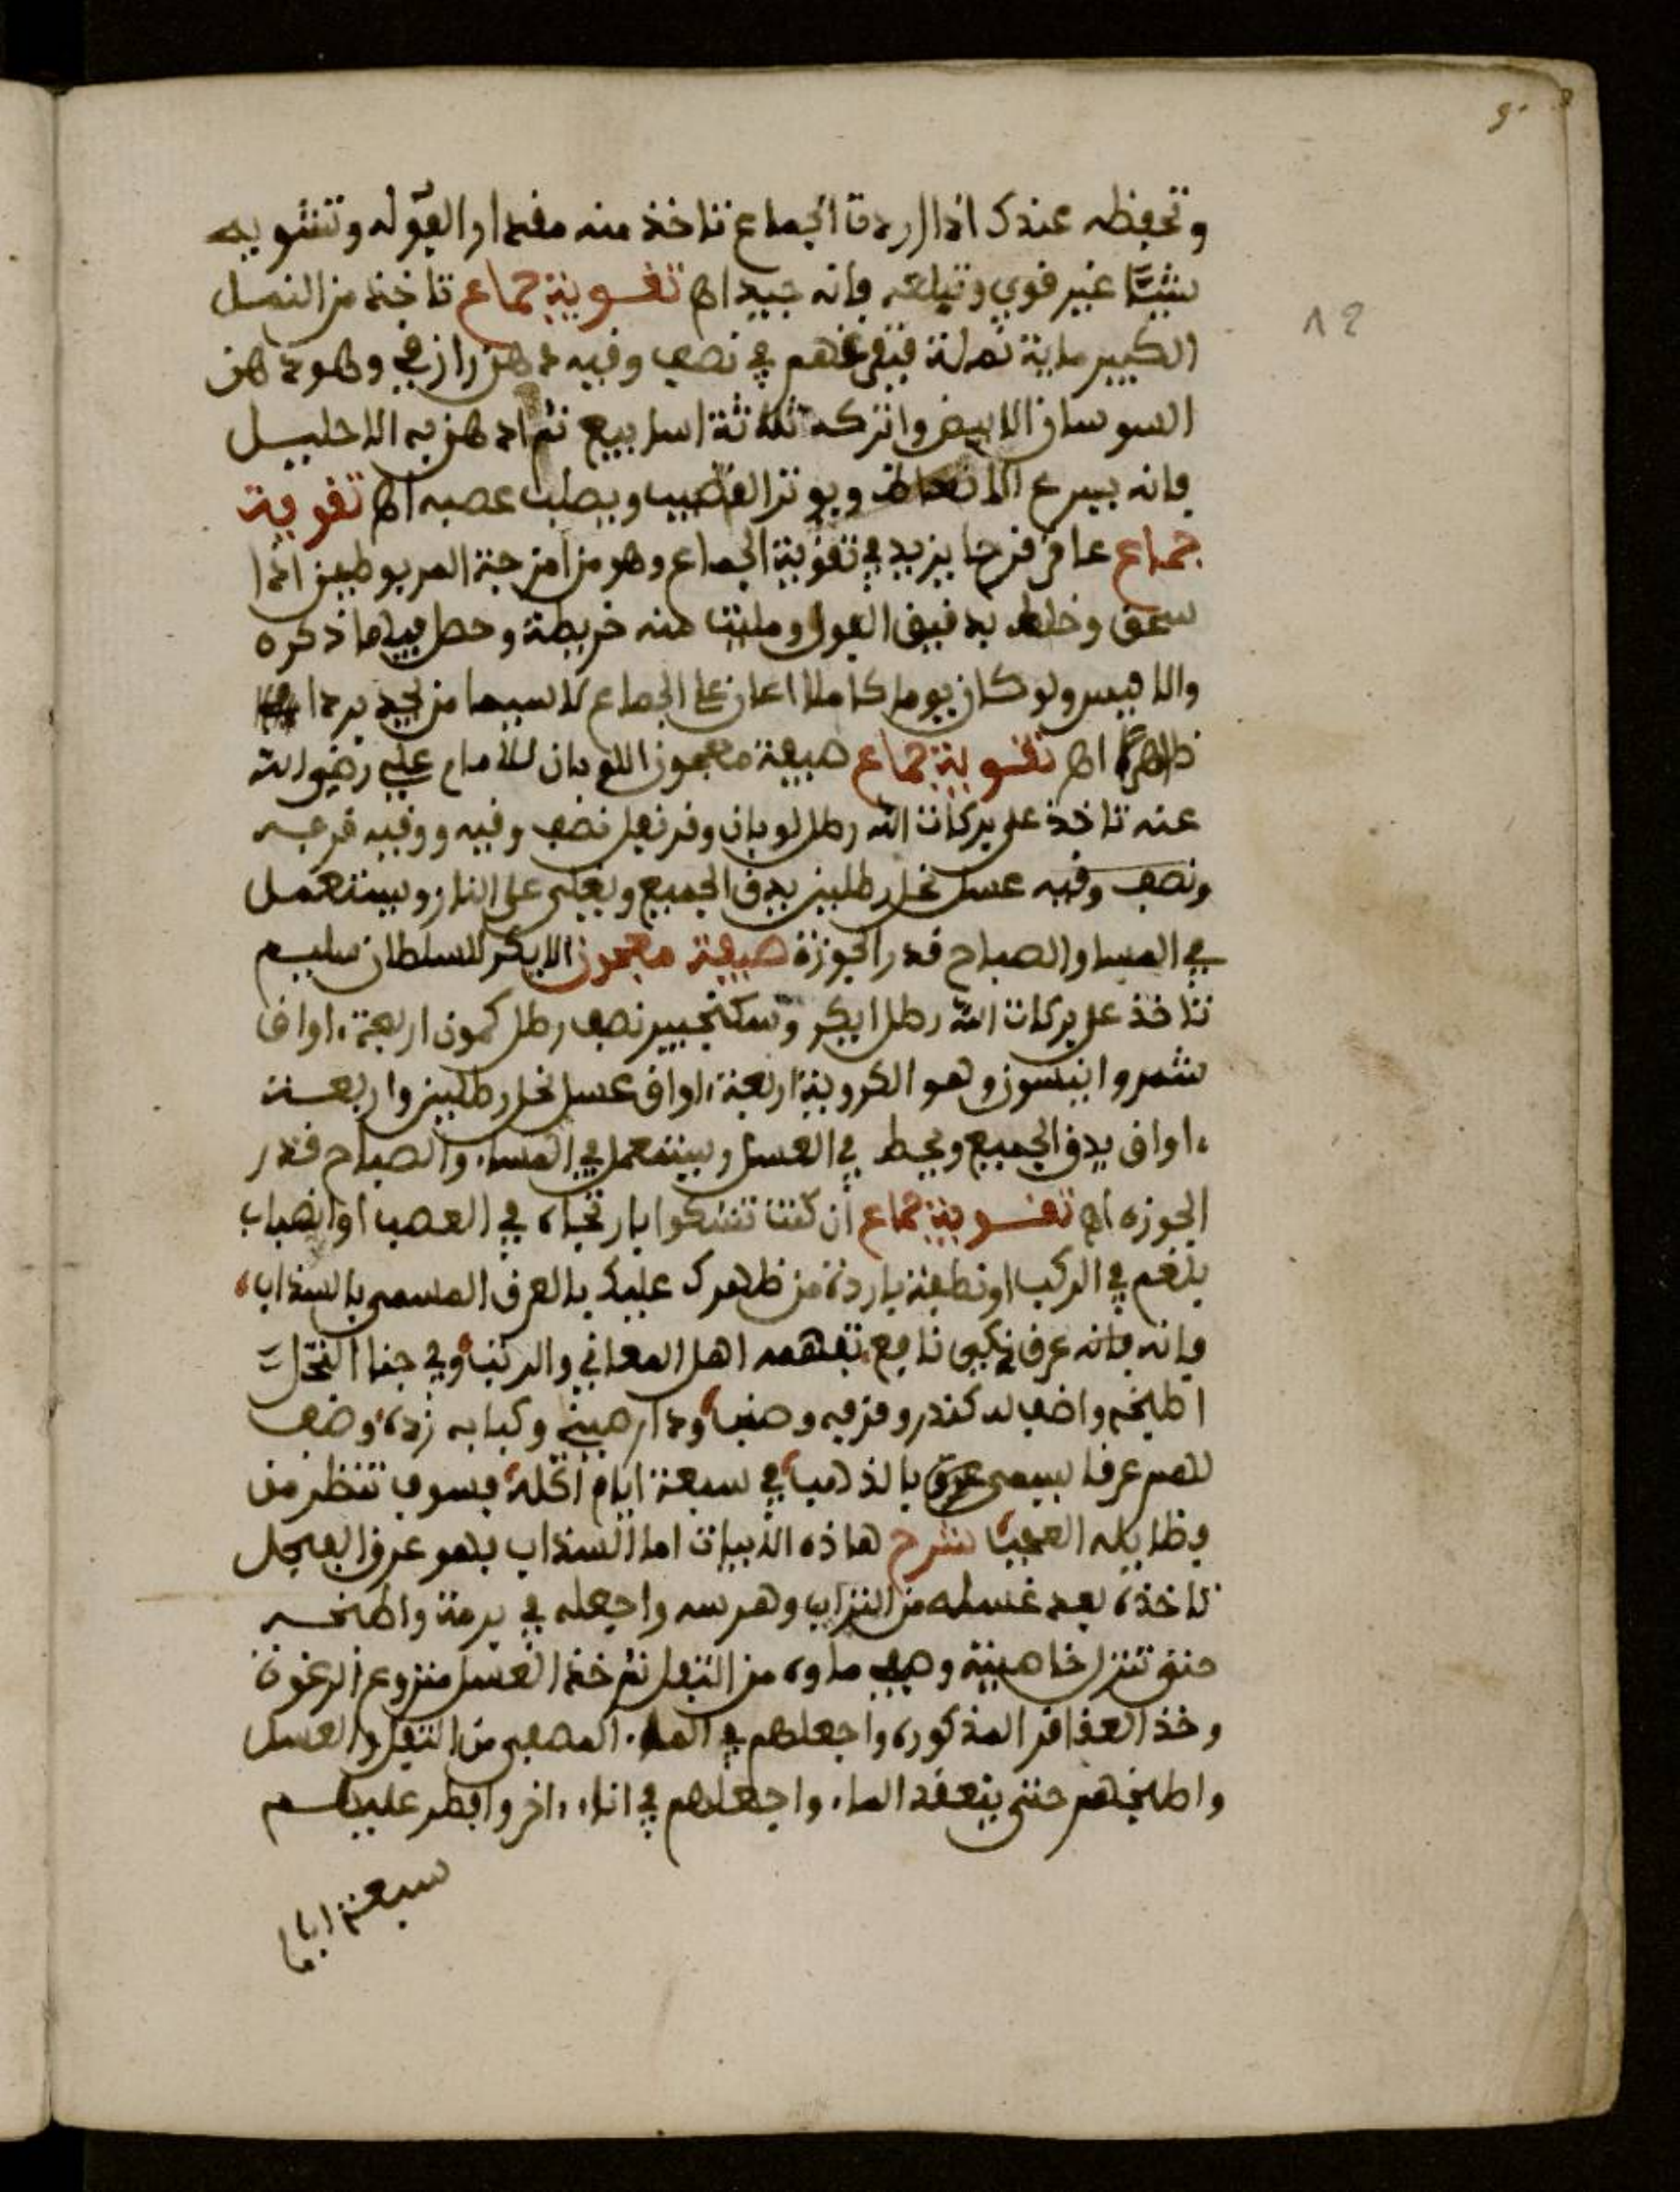 وتحفظه عندك اذا اردت الجماع تاخذ منه مقدار الفوله وتشويه
شيئا غير قوي وتبلعه فانه جيد اهـ تقوية جماع تاخذ من النمل
الكبير ماية نملة فتغرقهم في نصف وقيه دهن رازقي وهو دهن
السوسان الابيض واتركه ثلاثة اسابيع ثم ادهن به الاحليل
فانه يسرع الانعاظ ويوتر القضيب ويصلب عصبه اهـ تقوية
جماع عاقرقرحا يزيد في تقوية الجماع وهو من امزجة المربوطين اذا
سحق وخلط بدقيق الفول ومليت منه خريطة وحصل فيها ذكره
والانثيين ولو كان يوما كاملا اعان على الجماع لاسيما من يجد بردا
ظاهرًا اهـ تقوية جماع صيفة معجون اللوبان للامام علي رضي الله
عنه تاخذ على بركات الله رطل لوبان وقرنفل نصف وقيه ووقيه قرفه
ونصف وقيه عسل نحل رطلين يدق الجميع ويغلى على النار ويستعمل
في المسا والصباح قدر الجوزة صيفة معجون الايكر للسلطان سليم
تاخذ على بركات الله رطل ايكر وسكنجبير نصف رطل كمون اربعة اواق
شمر وانيسون وهو الكروية اربعة اواق عسل نحل رطلين واربعة
اواق يدق الجميع ويحط في العسل ويستعمل في المساء والصباح قدر
الجوزه اهـ تقوية جماع ان كنت تشكوا بارتخاء في العصب او انصباب
بلغم في الركب او نطفة باردة من ظهرك عليك بالعرق المسمى بالسذاب
فانه فانه عرق زكي نافع تفهمه اهل المعاني والرتب وفي جنا النحل
اطبخه واضف له كندر وقرفه وصنب ودارصيني وكبابه زده وضف
لهم عرقا يسمى عرق بالذهب في سبعة ايام اكله فسوف تنظر من
فضايله العجب شرح هاذه الابيات اما السذاب فهو عرق الفيجل
تاخذه بعد غسله من التراب وهرسه واجعله في برمة واطبخه
حتى تنزل خاصيته وصفي ماوه من التفل ثم خذ العسل منزوع الرغوة
وخذ العقاقر المذكوره واجعلهم في الماء المصفى من التفل والعسل
واطبخهم حتى ينعقد الماء واجعلهم في اناء اخر وافطر عليهم
سبعة ايام